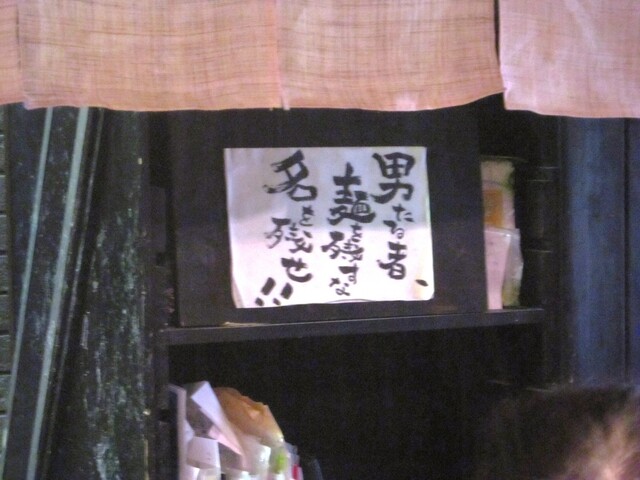 男たる者、
麺を残すな
名を残せ!!